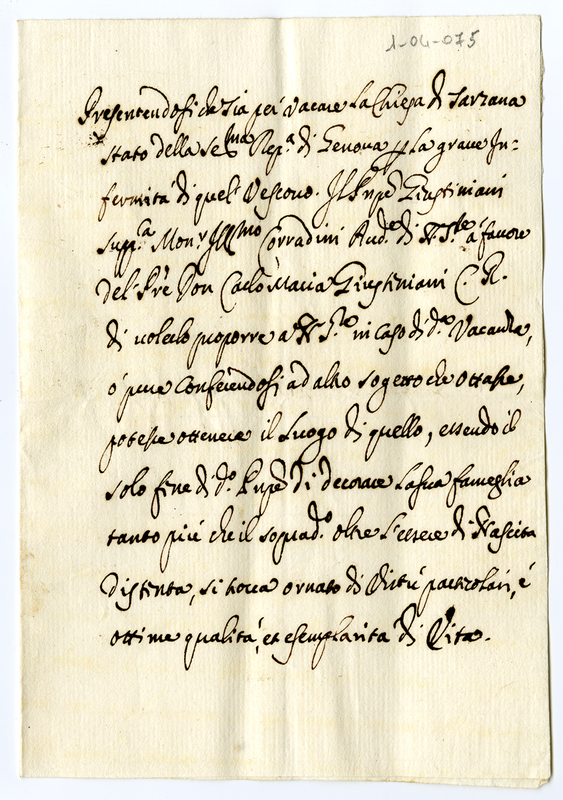 1-04-075
Presentendosi che sia per vacare la Chiesa di Sarzana
Stato della Ser.ma Rep.a di Genova per la grave In-
fermità di quel Vescovo. Il Pnpe Giustiniani
supp.a Mon.r Ill.mo Corradini Aud.e di N. S.re à favore
del Prê Don Carlo Maria Giustiniani C. R.
di volerlo proporre a N. S.re in caso di d.a Vacanza,
ó pure conferendosi ad altro sogetto che ottasse,
potesse ottenere il luogo di quello, essendo il
solo fine di d.o Pnpe di decorare la sua fameglia
tanto più che il soprad.o oltre l'essere di Nascita
distinta, si trova ornato di Virtù particolari, é
ottime qualità, et esemplarità di Vita.